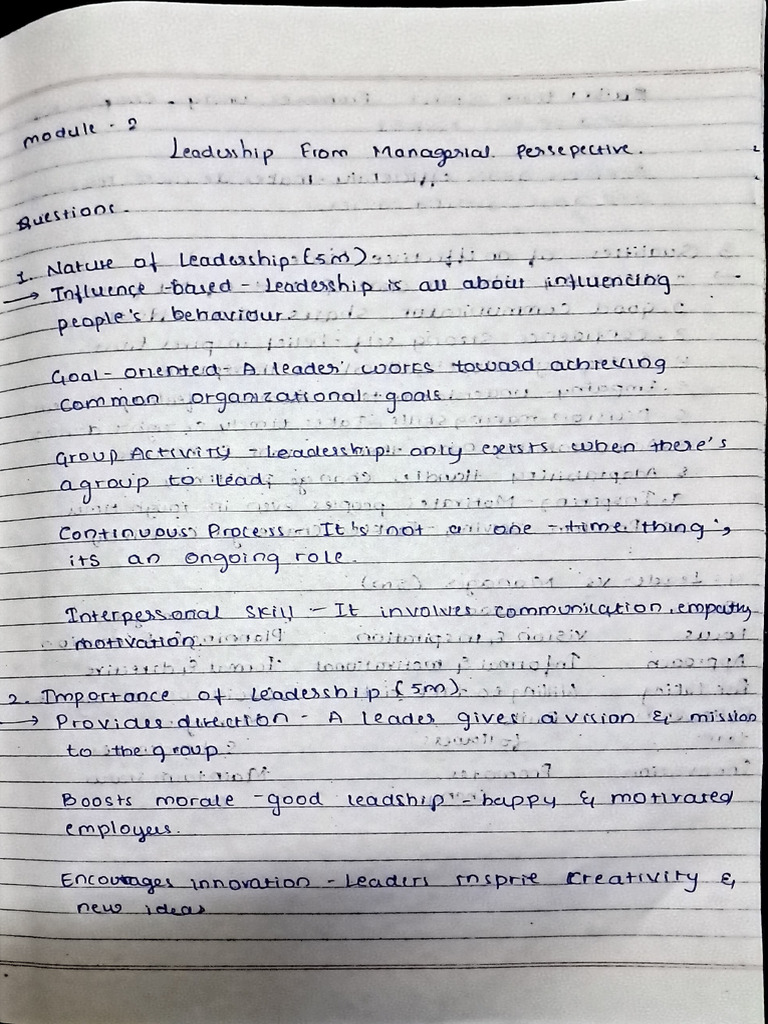 module - 2
Leadership From Managerial Persepective.
Questions.
1. Nature of Leadership (5m)
→ Influence -based - Leadership is all about influencing
people's behaviour.
Goal - oriented - A leader works toward achieving
common organizational goals.
Group Activity - Leadership only exists when there's
a group to lead
Continuous Process - It's not a one - time thing,
its an ongoing role.
Interpersonal Skill - It involves communication, empathy
motivation.
2. Importance of Leadership (5m)
→ Provides direction - A leader gives a vision & mission
to the group
Boosts morale - good leadship - happy & motivated
employees.
Encourages innovation - Leaders insprie creativity &
new ideas